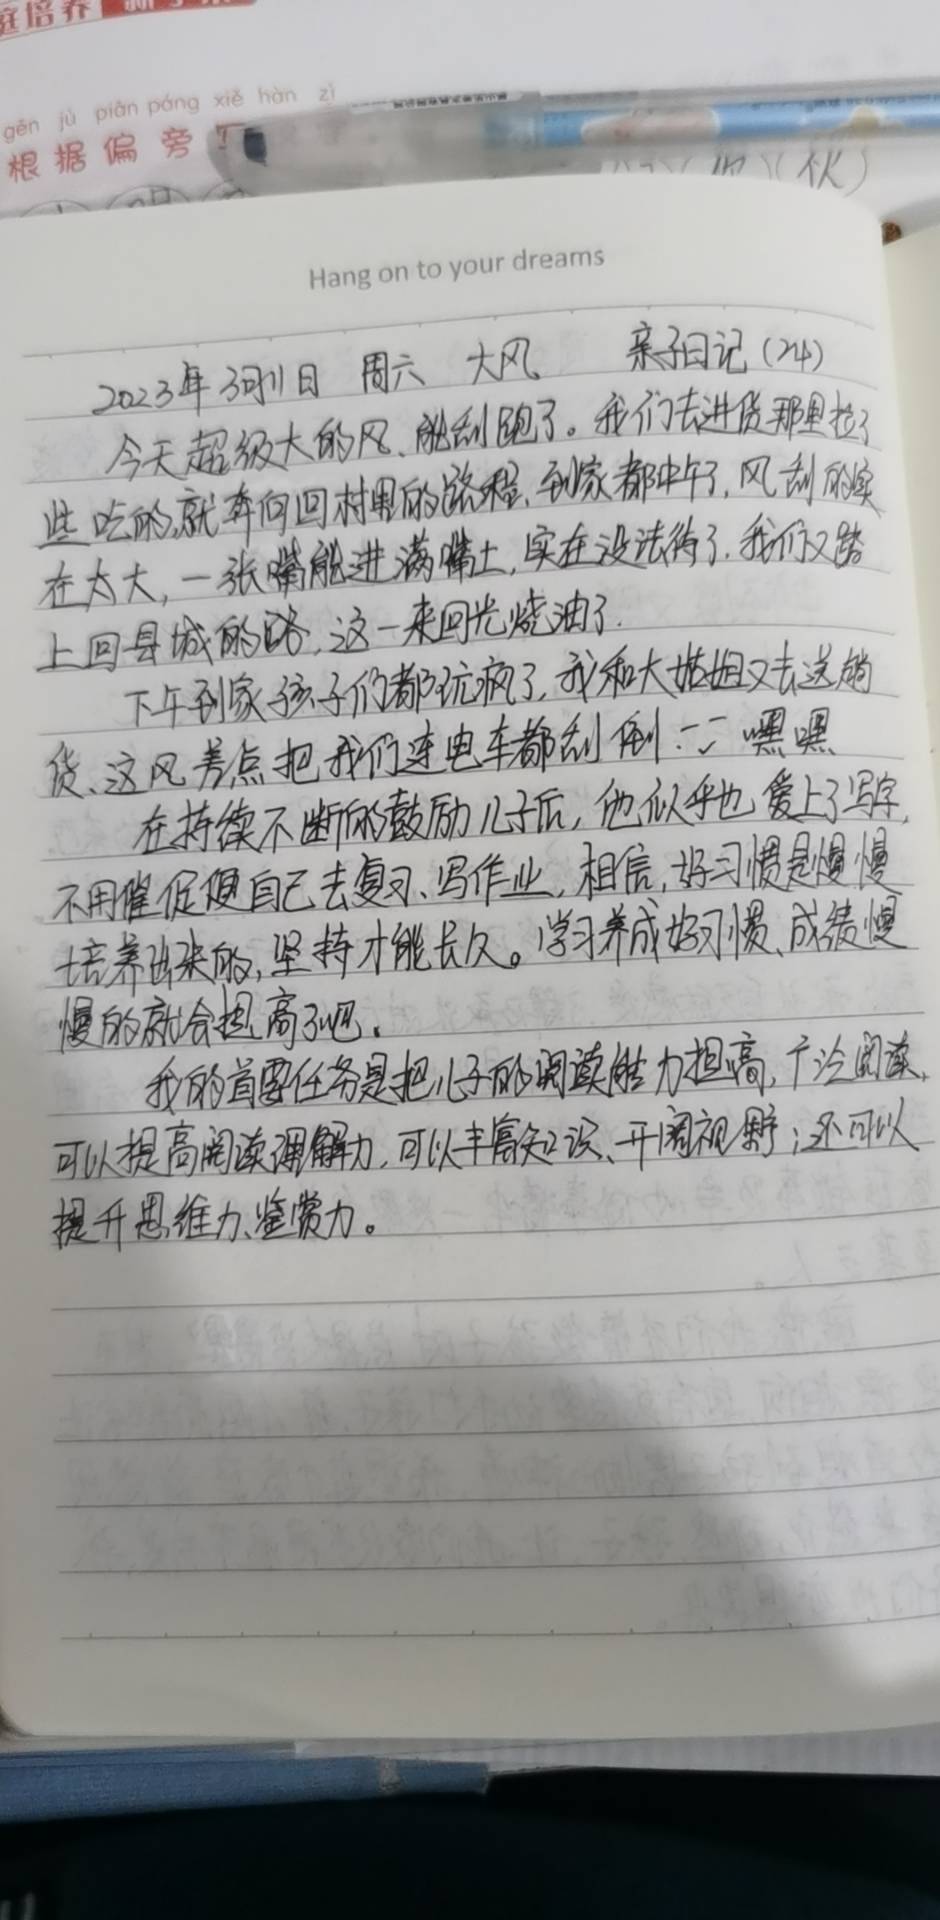 庭培养
gēn jù piān páng xiě hàn zì
根据偏旁
(伙)
Hang on to your dreams
2023年3月11日 周六 大风 亲子日记(24)
今天超级大的风、能刮跑了。我们去进货那里拉了
些吃的,就奔向回村里的路程、到家都中午了,风刮的实
在太大,一张嘴能进满嘴土,实在没法待了.我们又踏
上回县城的路,这一来回光烧油了.
下午到家孩子们都玩疯了,我和大姑姐又去送趟
货、这风差点把我们连电车都刮倒 嘿嘿
在持续不断的鼓励儿子后,他似乎也爱上了写字,
不用催促便自己去复习、写作业,相信,好习惯是慢慢
培养出来的,坚持才能长久。学习养成好习惯、成绩慢
慢的就会提高了吧.
我的首要任务是把儿子的阅读能力提高,广泛阅读,
可以提高阅读理解力,可以丰富知识、开阔视野;还可以
提升思维力、鉴赏力。